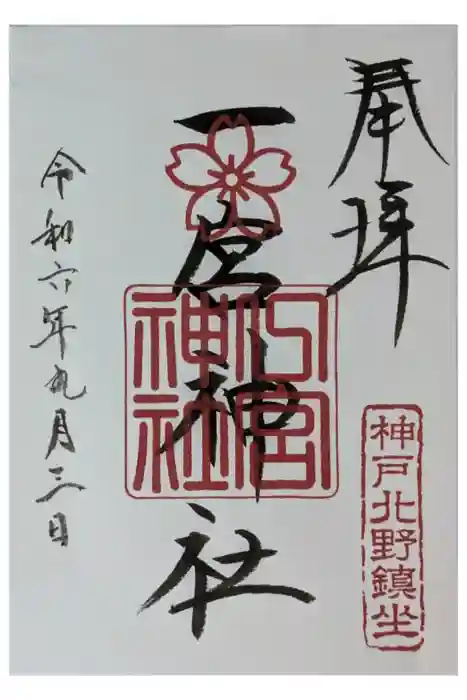 奉拝
神戸北野鎮坐
一宮神社
宮
神社
令和六年九月三日